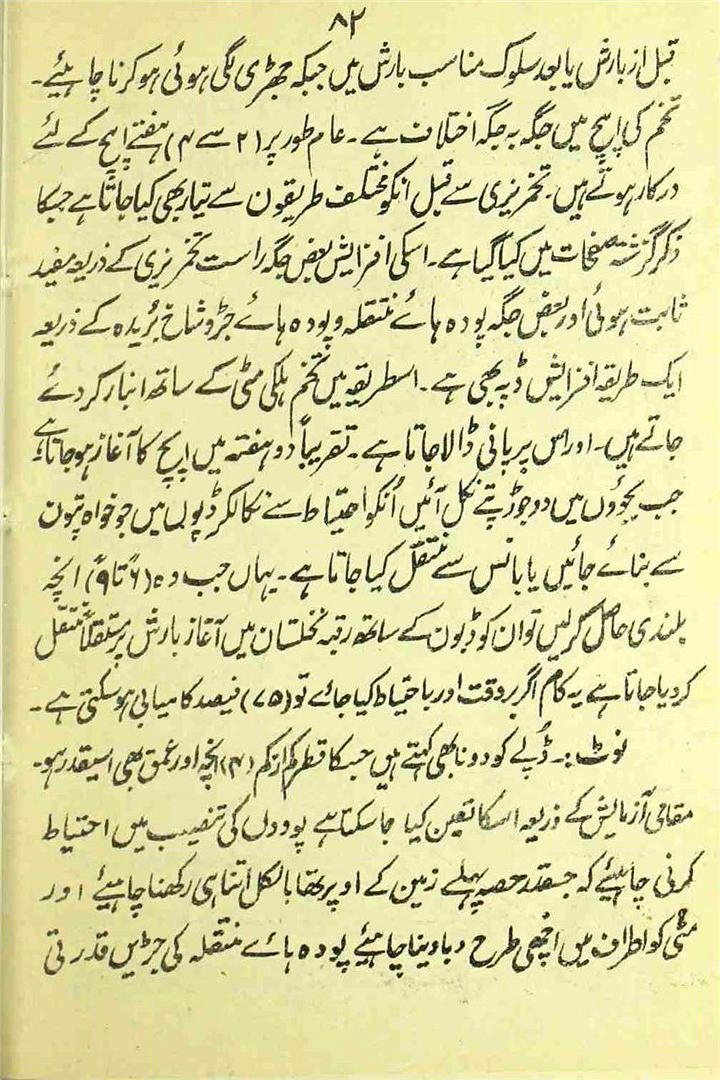 ۸۲
قبل از بارش یا بعد سلوک مناسب بارش میں جبکہ جھڑی لگی ہوئی ہو کرنا چاہیئے۔
تخم کی اپج میں جگہ بہ جگہ اختلاف ہے۔ عام طور پر (۲ سے ۴) ہفتے اپج کے لئے
درکار ہوتے ہیں۔ تخمریزی سے قبل انکو مختلف طریقون سے تیار بھی کیا جاتا ہے جسکا
ذکر گزشتہ صفحات میں کیا گیا ہے۔ اسکی افزایش بعض جگہ راست تخمریزی کے ذریعہ مفید
ثابت ہوئی اور بعض جگہ پودہ ہائے منتقلہ و پودہ ہائے جڑ و شاخ بُریدہ کے ذریعہ
ایک طریقہ افزایش ڈپہ بھی ہے۔ اسطریقہ میں تخم ہلکی مٹی کے ساتھ انبار کر دئے
جاتے ہیں۔ اور اس پر پانی ڈالا جاتا ہے۔ تقریباً دو ہفتہ میں اپج کا آغاز ہو جاتا ہے۔
جب بجوؤں میں دو جوڑ پتے نکل آئیں اُنکو احتیاط سے نکالکر ڈپوں میں جو خواہ پتون
سے بنائے جائیں یا بانس سے منتقل کیا جاتا ہے۔ یہاں جب وہ (۶ً تا ۹ً) انچہ
بلندی حاصل کرلیں تو ان کو ڈبون کے ساتھ رقبہ نخلستان میں آغاز بارش پر مستقلاً منتقل
کر دیا جاتا ہے یہ کام اگر بر وقت اور با احتیاط کیا جائے تو (۷۵) فیصد کامیابی ہو سکتی ہے۔
نوٹ:۔ ڈپے کو دونا بھی کہتے ہیں جسکا قطر کم از کم (۴) انچہ اور عمق بھی اسیقدر ہو۔
مقامی آزمایش کے ذریعہ اسکا تعین کیا جا سکتا ہے پودوں کی تنصیب میں احتیاط
کرنی چاہیئے کہ جسقدر حصہ پہلے زمین کے اوپر تھا بالکل اتنا ہی رکھنا چاہیئے اور
مٹی کو اطراف میں اچھی طرح دبا دینا چاہیئے پودہ ہائے منتقلہ کی جڑیں قدرتی